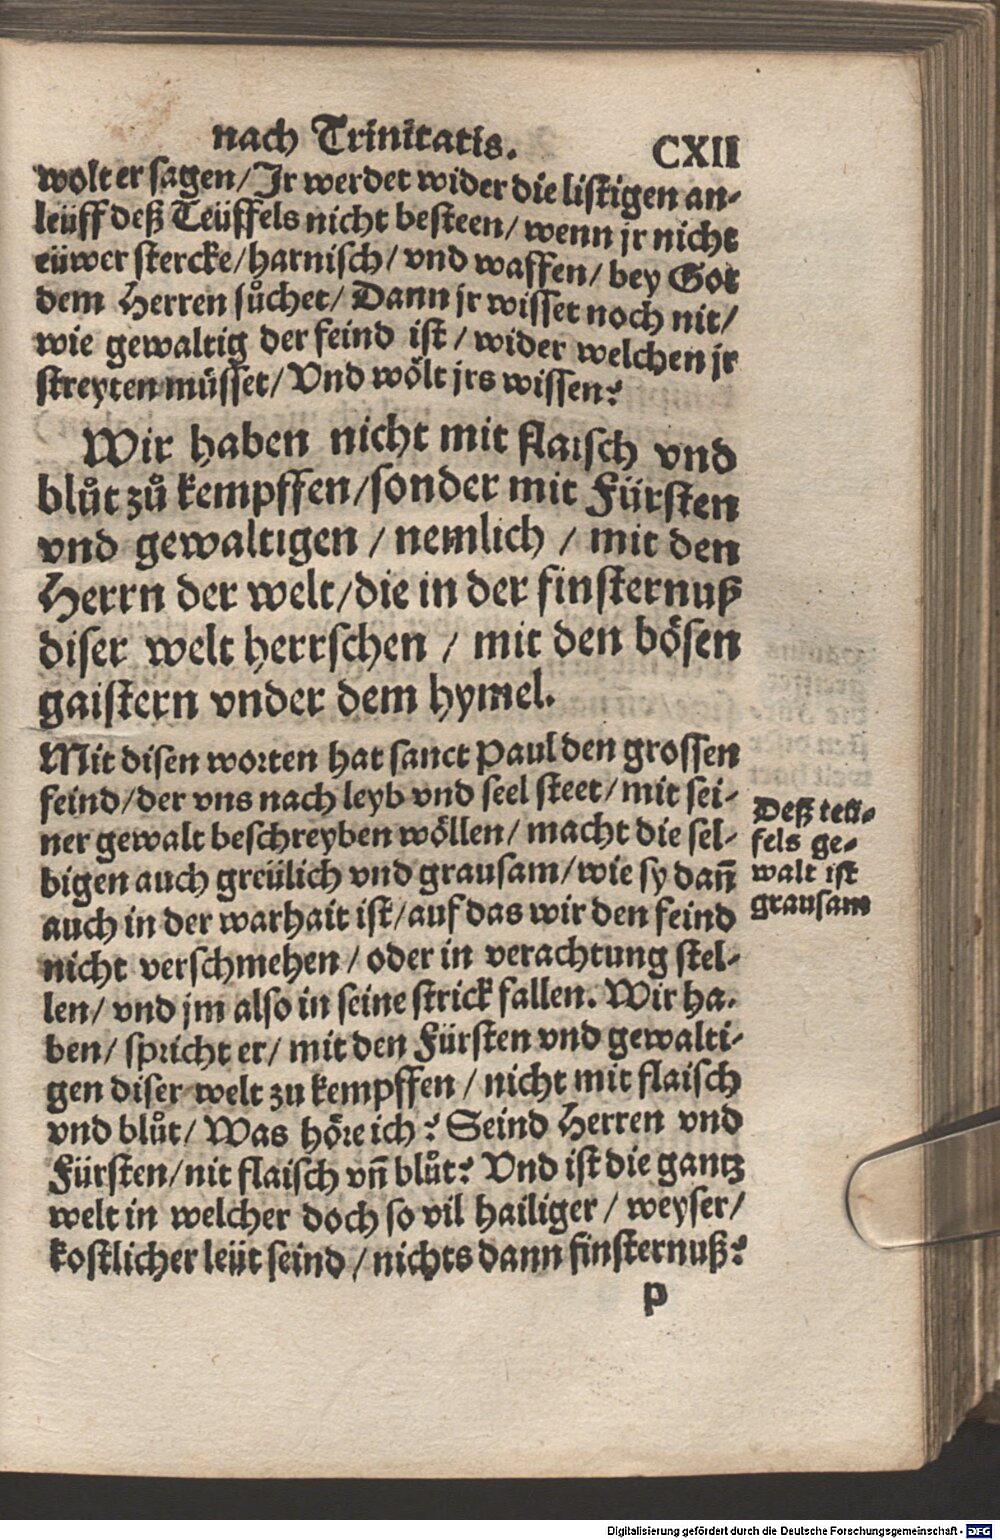 nach Trinitatis. CXII
wolt er sagen/ Jr werdet wider die listigen an-
leüff deß Teüffels nicht besteen/ wenn jr nicht
eüwer stercke/ harnisch/ vnd waffen/ bey Got
dem Herren sůchet/ Dann jr wisset noch nit/
wie gewaltig der feind ist/ wider welchen jr
streyten müsset/ Vnd wölt jrs wissen?
Wir haben nicht mit flaisch vnd
blůt zů kempffen/ sonder mit Fürsten
vnd gewaltigen/ nemlich/ mit den
Herrn der welt/ die in der finsternuß
diser welt herrschen/ mit den bösen
gaistern vnder dem hymel.
Mit disen worten hat sanct Paul den grossen
feind/ der vns nach leyb vnd seel steet/ mit sei-
ner gewalt beschreyben wöllen/ macht die sel-
bigen auch greülich vnd grausam/ wie sy dañ
auch in der warhait ist/ auf das wir den feind
nicht verschmehen/ oder in verachtung stel-
len/ vnd jm also in seine strick fallen. Wir ha-
ben/ spricht er/ mit den Fürsten vnd gewalti-
gen diser welt zu kempffen/ nicht mit flaisch
vnd blůt/ Was höre ich? Seind Herren vnd
Fürsten/ nit flaisch vñ blůt? Vnd ist die gantz
welt in welcher doch so vil hailiger/ weyser/
kostlicher leüt seind/ nichts dann finsternuß?
Deß teü-
fels ge-
walt ist
grausam
p
Digitalisierung gefördert durch die Deutsche Forschungsgemeinschaft - DFG